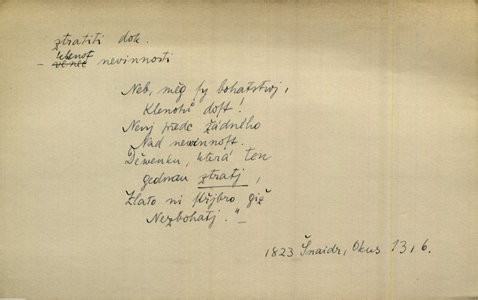 ztratiti dok.
– klenot
věnec nevinnosti
Neb, měg sy bohatstwj,
Klenotů dost!
Nenj přede žádného
Nad newinnost.
Děwenku, která ten
gednau ztratj,
Zlato ni střjbro giž
Nezbohatj."–
1823 Šnaidr, Okus 13, 6.